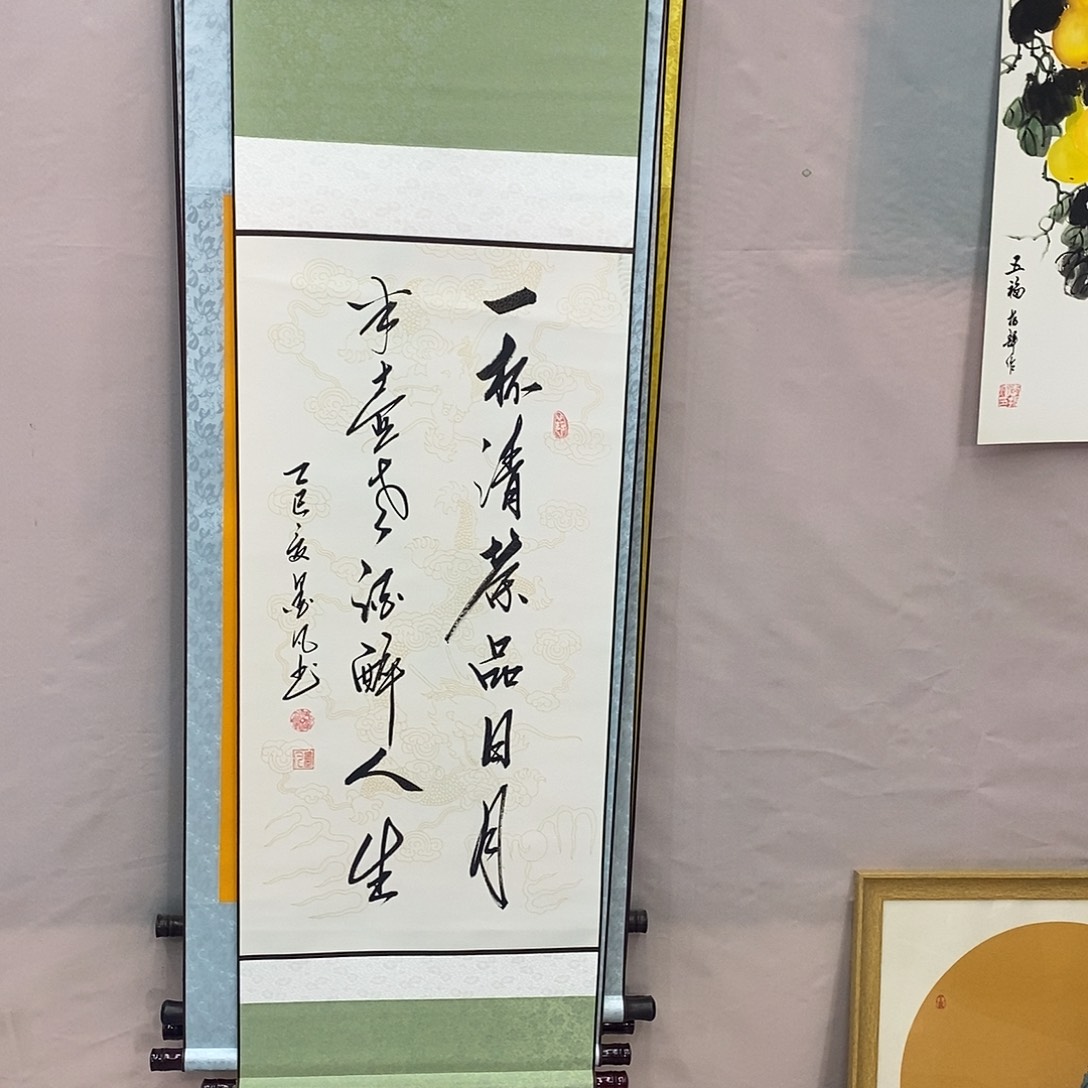 一杯清茶品日月
半壶老酒醉人生
乙巳夏墨凡书
五福